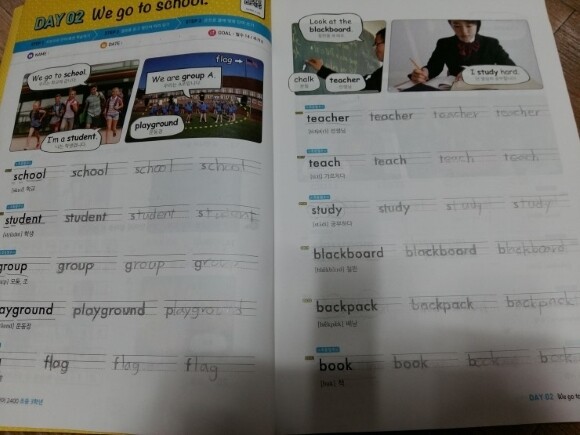 DAY 02 We go to school.
GOAL
flag
We go to school.
We are group A.
I'm a student.
playground
운동장
school school school school
학교
student student student student
학생
group group group group
playground playground playground
운동장
flag flag flag
Look at the
blackboard.
chalk
분필
teacher
선생님
I study hard.
teacher teacher teacher teacher
선생님
teach teach teach teach
가르치다
study study study study
공부하다
blackboard blackboard blackboard
칠판
backpack backpack backpack
배낭
book book book book
책
DAY 02 We go to